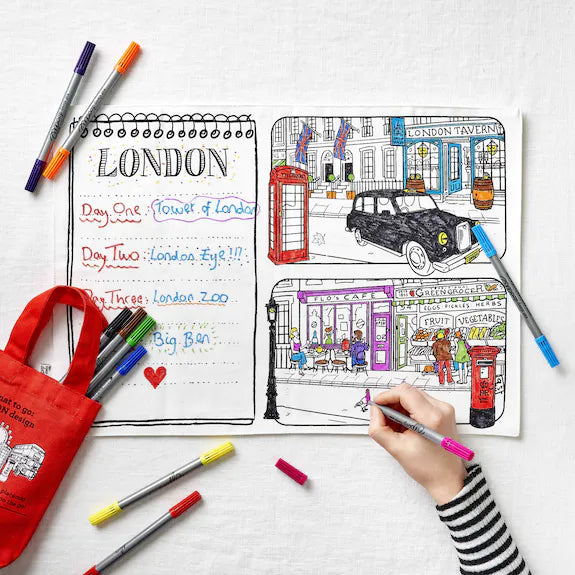 LONDON
Day One : Tower of London
Day Two : London Eye!!!
Day Three : London Zoo
Big Ben
LONDON TAVERN
TELEPHONE
FLO'S CAFE
THE GREENGROCER
EGGS·PICKLES·HERBS
FRUIT
VEGETABLES
to go:
design
placemat